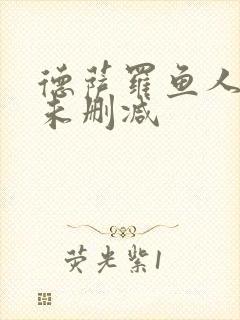 德萨罗鱼人
未删减
荧光紫1